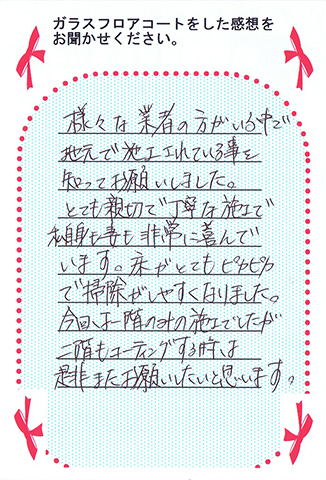 ガラスフロアコートをした感想を
お聞かせください。
様々な業者の方がいる中で
地元で施工されている事を
知ってお願いしました。
とても親切で丁寧な施工で
私自身も妻も非常に喜んで
います。床がとてもピカピカ
で掃除がしやすくなりました。
今回は一階のみの施工でしたが
二階もコーティングする時は
是非またお願いしたいと思います。